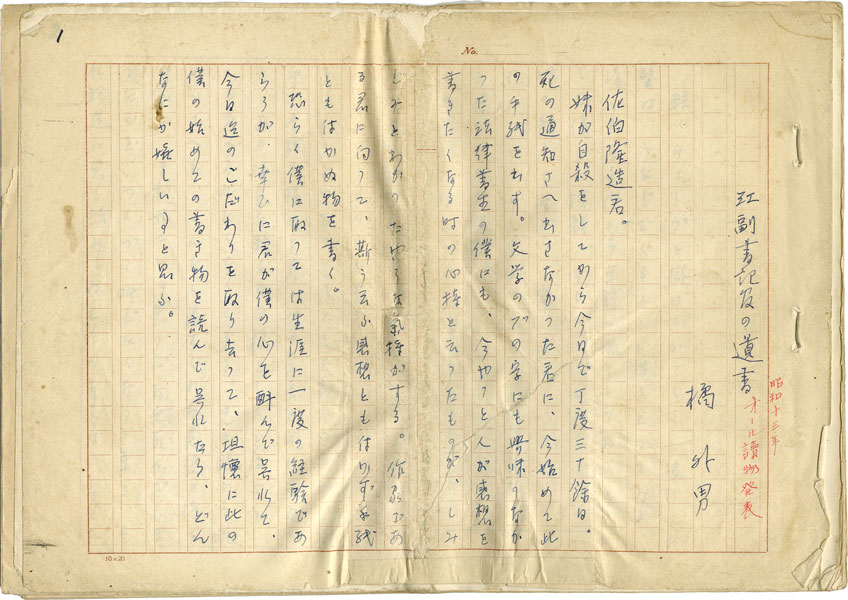 1
No.
江副書記官の遺書
昭和十三年
オール讀物発表
橘外男
佐伯隆造君。
妹が自殺をしてから今日で丁度三十餘日。
死の通知さへ出さなかつた君に、今始めて此
の手紙を出す。文学のブの字にも興味のなか
つた法律書生の僕にも、今やつと人が感想を
書きたくなる時の心持と云つたものが、しみ
じみとわかつたやうな気持がする。作家であ
る君に向つて、斯う云ふ感想ともはず手紙
ともはかぬ物を書く。
恐らく僕に取つては生涯に一度の経験であ
らうが、幸ひに君が僕の心を酌んで呉れて、
今日迄のこだわりを取り去つて、坦懐に此の
僕の始めての書き物を読んで呉れたら、どん
なにか嬉しいうと思ふ。
10×20